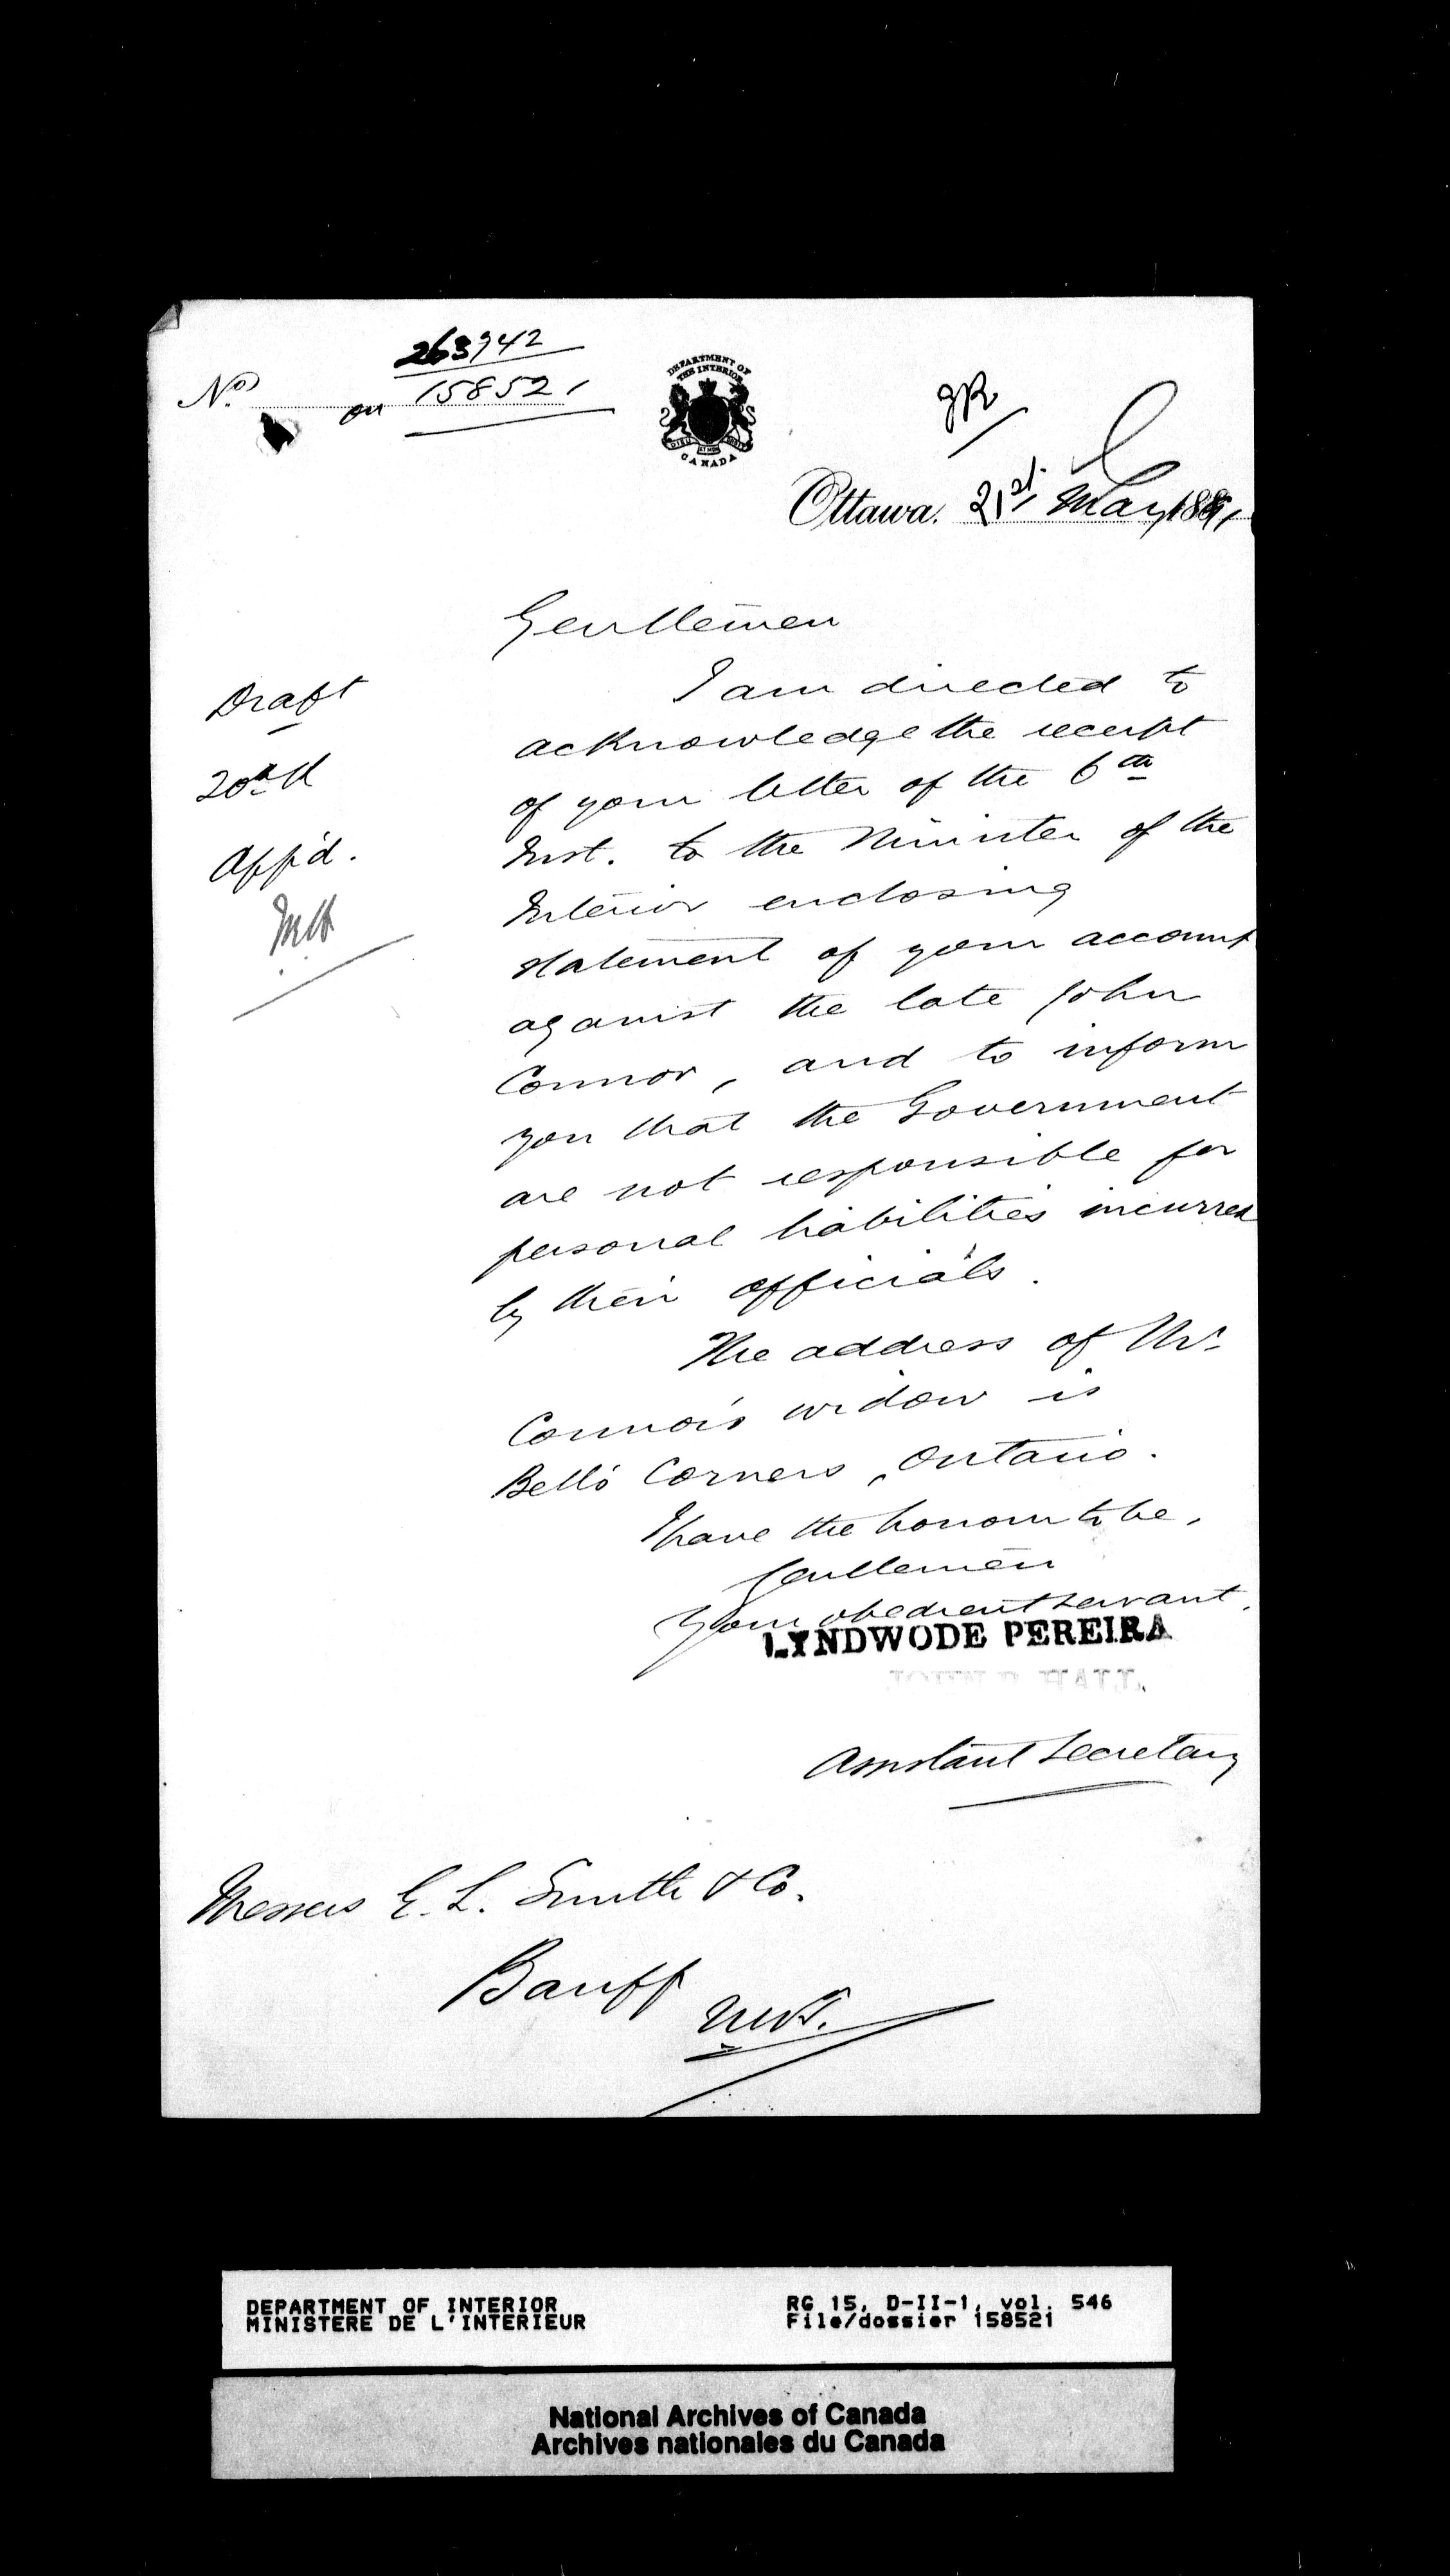 263942
No on 158521
DEPARTMENT OF
THE INTERIOR
DIEU ET MON DROIT
CANADA
Ottawa. 21st May 1891
Gentlemen
Draft
I am directed to
acknowledge the receipt
20th
of your letter of the 6th
App'd.
Inst. to the Minister of the
Interior enclosing
statement of your account
against the late John
Connor, and to inform
you that the Government
are not responsible for
personal liabilities incurred
by their officials.
The address of Mr.
Connor's widow is
Bell's Corners, Ontario.
I have the honour to be,
Gentlemen
Your obedient servant,
LYNDWODE PEREIRA
Assistant Secretary
Messrs E. L. Smith & Co.
Banff
NWT.
DEPARTMENT OF INTERIOR RG 15, D-II-1, vol. 546
MINISTERE DE L'INTERIEUR File/dossier 158521
National Archives of Canada
Archives nationales du Canada